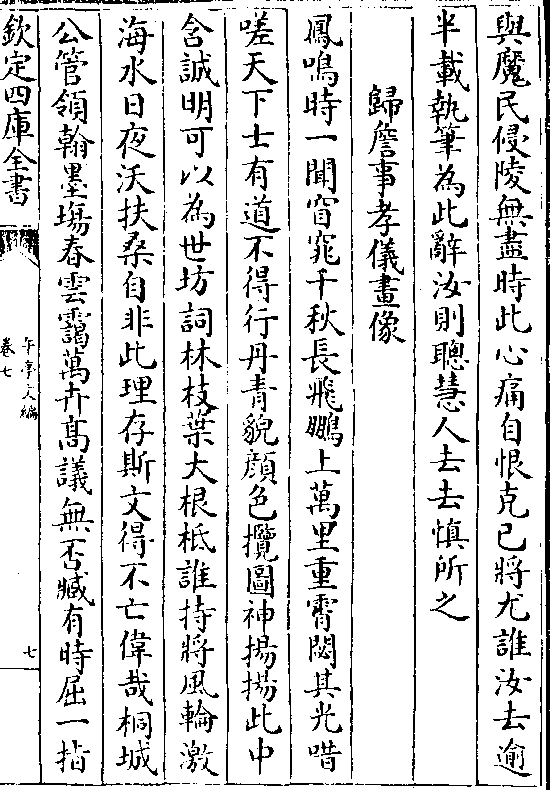 與魔民侵陵無盡時此心痛自恨克已將尤誰汝去逾
半載執筆為此辭汝則聰慧人去去慎所之
歸詹事孝儀畫像
鳳鳴時一聞窅窕千秋長飛鵬上萬里重霄閟其光唶
嗟天下士有道不得行丹青貌顔色攬圖神揚揚此中
含誠明可以為世坊詞林枝葉大根柢誰持將風輪激
海水日夜沃扶桑自非此理存斯文得不亡偉哉桐城
公管領翰墨塲春雲靄萬卉高議無否臧有時屈一指
欽定四庫全書
午亭文編
卷七
七